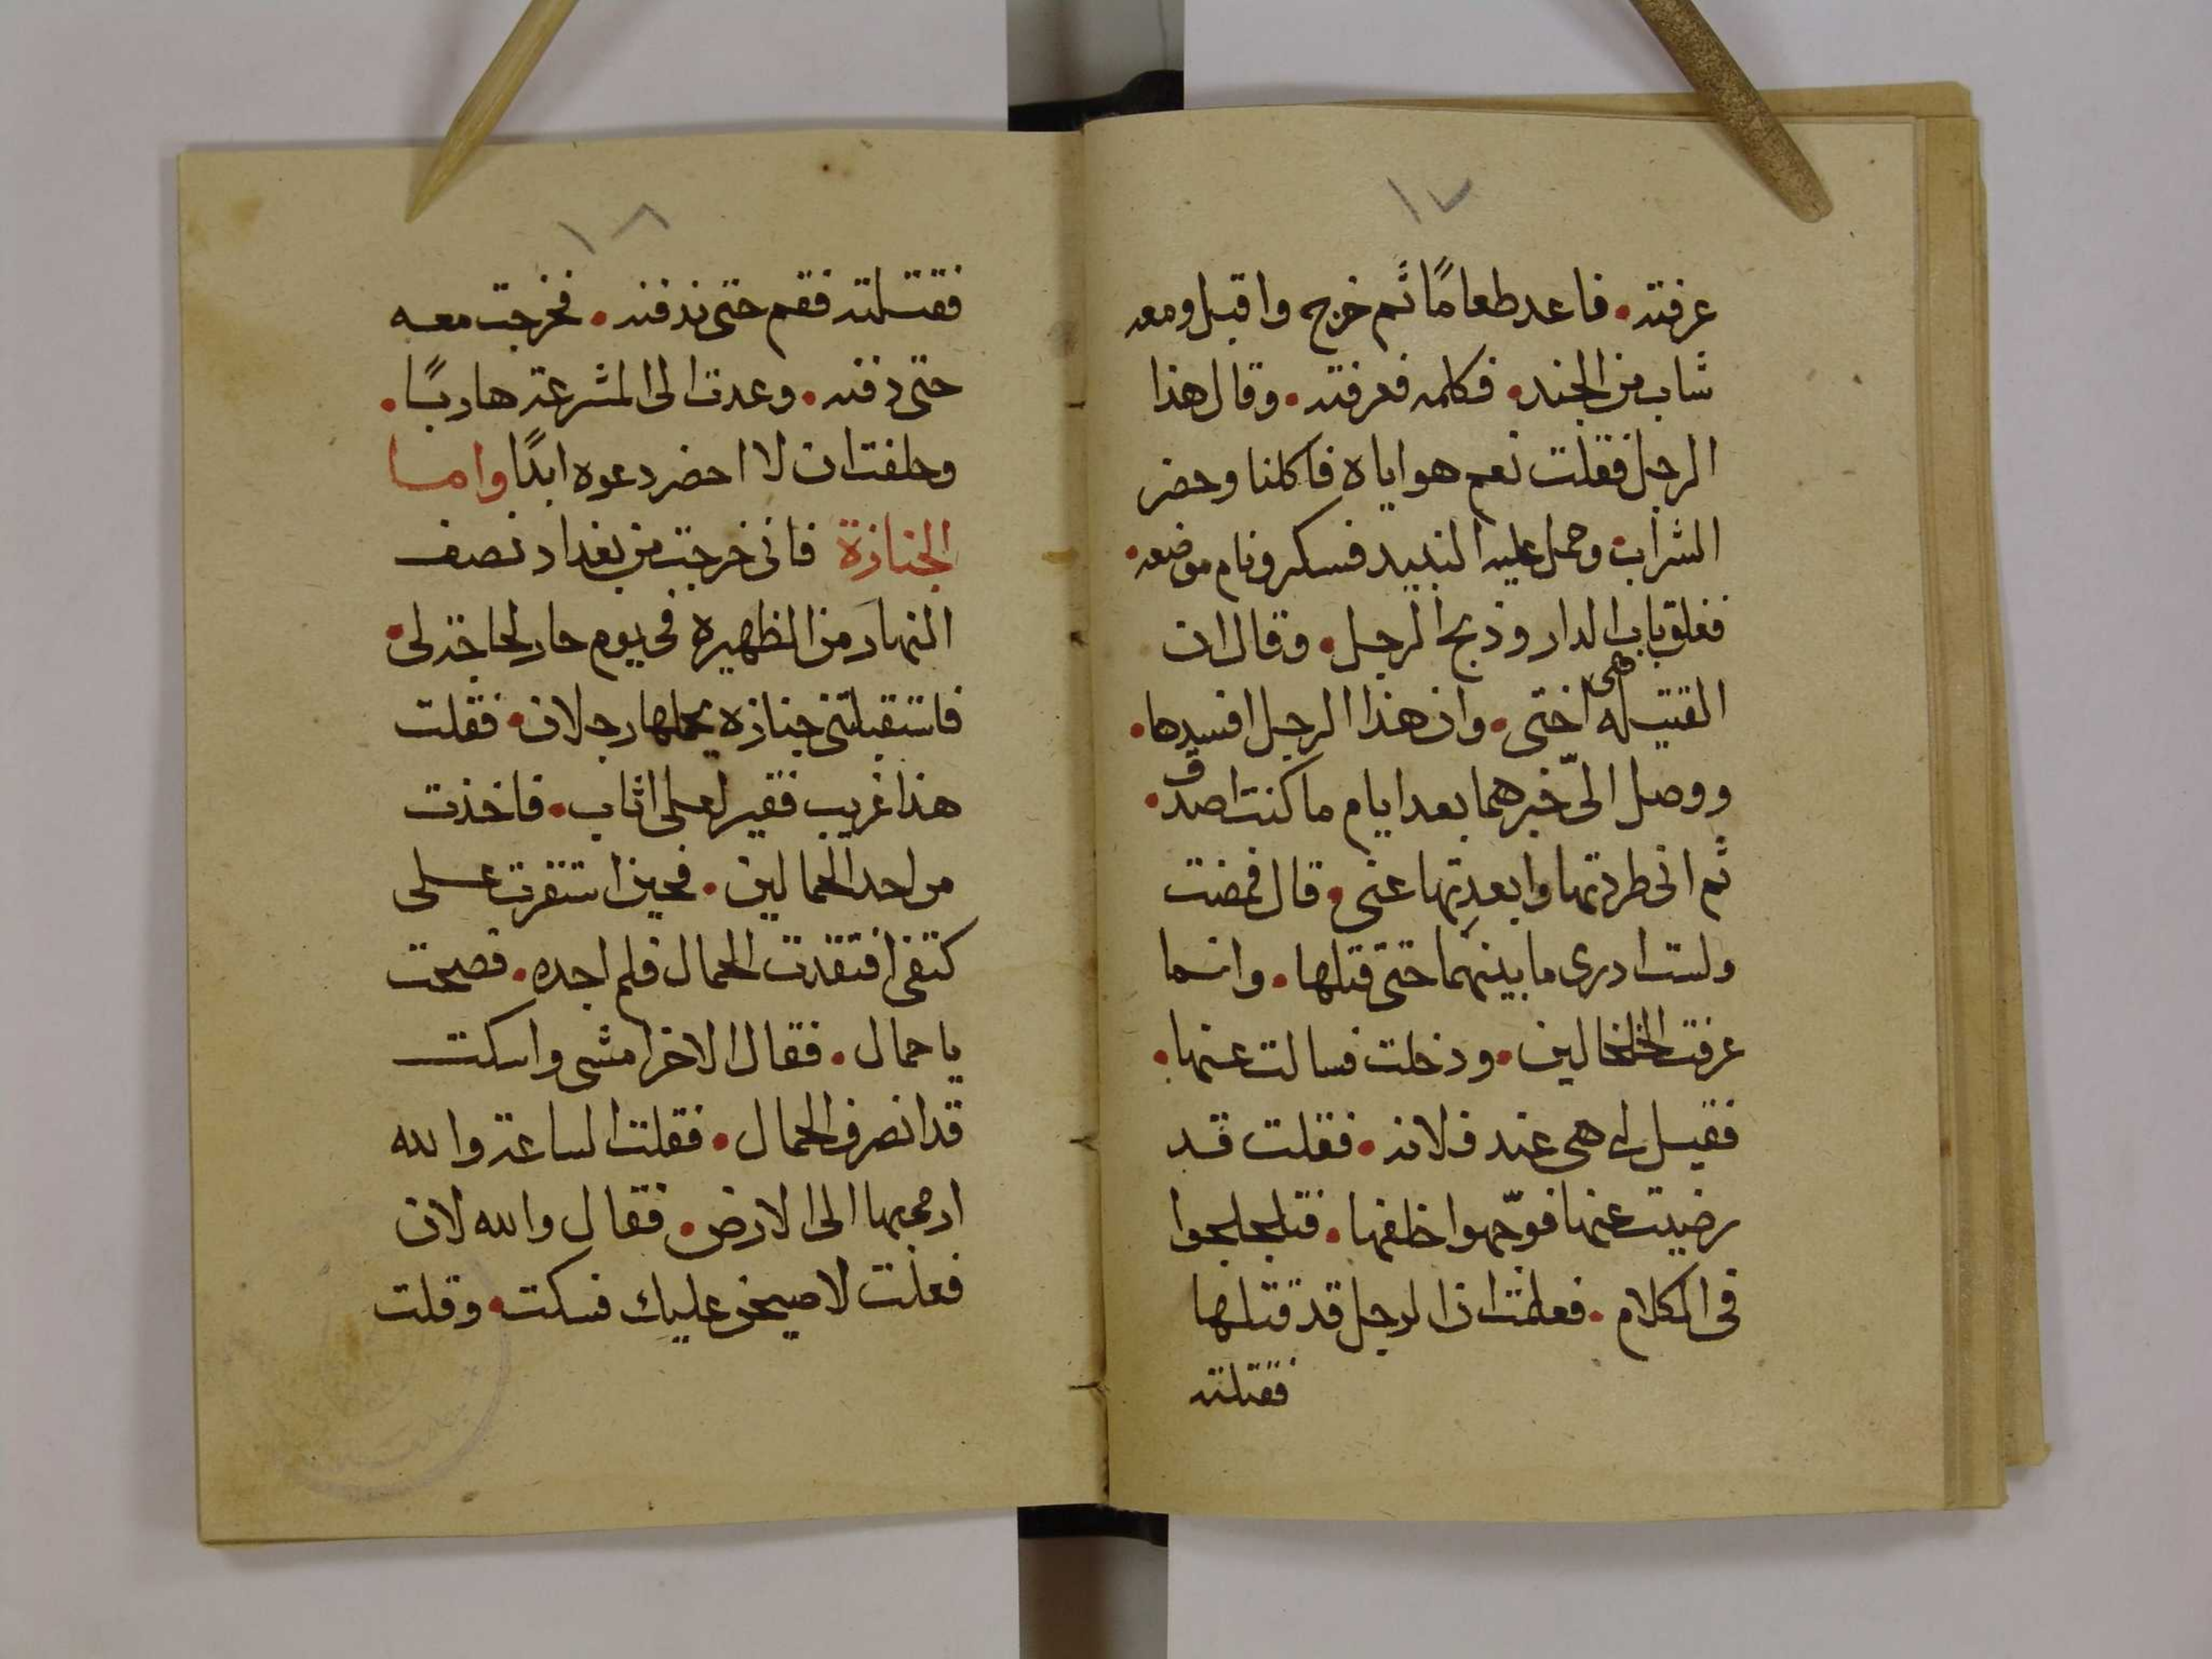 ١٧
عرفته • فاعد طعامًا ثم خرج واقبل ومعه
شاب من الجند • فكلمه فعرفته • وقال هذا
الرجل فقلت نعم هو اياه فاكلنا وحضر
الشراب وحمل عليه النبيد فسكر ونام موضعه •
فغلق باب الدار وذبح الرجل • وقال ان
القتيله هى اختى • وان هذا الرجل افسدها •
ووصل الىّ خبرهما بعد ايام ما كنت اصدق •
ثم انى طردتها وابعدتها عنى • قال فمضت
ولست ادرى ما بينهما حتى قتلها • وانما
عرفت الخلخالين • ودخلت فسالت عنها •
فقيل لى هى عند فلانه • فقلت قد
رضيت عنها فوجّهوا خلفها • فتلجلجوا
فى الكلام • فعلمت ان الرجل قد قتلها
فقتلته
١٨
فقتلته فقم حتى ندفنه • فخرجت معه
حتى دفنه • وعدت الى المشرعة هاربًا •
وحلفت ان لا احضر دعوه ابدًا واما
الجنازة فانى خرجت من بغداد نصف
النهار من الظهيرة فى يوم حار لحاجة لى •
فاستقبلتنى جنازه يحملها رجلان • فقلت
هذا غريب فقير لعلى اثاب • فاخذت
من احد الحمالين • فحين استقرت على
كتفى افتقدت الحمال فلم اجده • فصحت
يا حمال • فقال الاخر امشى واسكت
قد انصرف الحمال • فقلت الساعة والله
ارمى بها الى الارض • فقال والله لان
فعلت لاصيحن عليك فسكت • وقلت